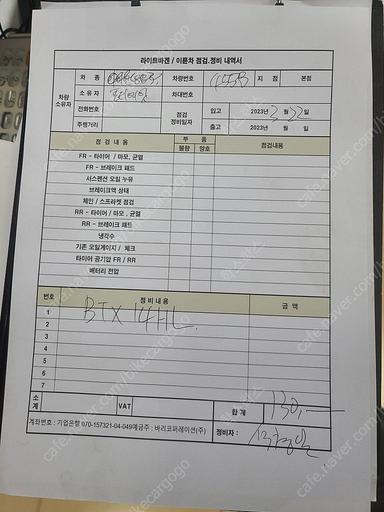 라이트바겐 / 이륜차 점검.정비 내역서
차량 소유자
차 종 차량번호 4555 지 점 본점
소 유 자 차대번호
전화번호 점검 정비일자 입고 2023년 3 월 22 일
주행거리 출고 2023년 월 일
점 검 내 용 부 품 점검내용
불량 양호
FR - 타이어 / 마모, 균열
FR - 브레이크 패드
서스펜션 오일 누유
브레이크액 상태
체인 / 스프라켓 점검
RR - 타이어 / 마모 , 균열
RR - 브레이크 패드
냉각수
기존 오일게이지 / 체크
타이어 공기압 FR / RR
배터리 전압
번호 정 비 내 용 금 액
1 BTX 14HL
2
3
4
5
6
7
소 계 VAT 합 계 130,—
계좌번호 : 기업은행 070-157321-04-049예금주 : 바리코퍼레이션(주) 정비자 :
cafe.naver.com/bikecargogo